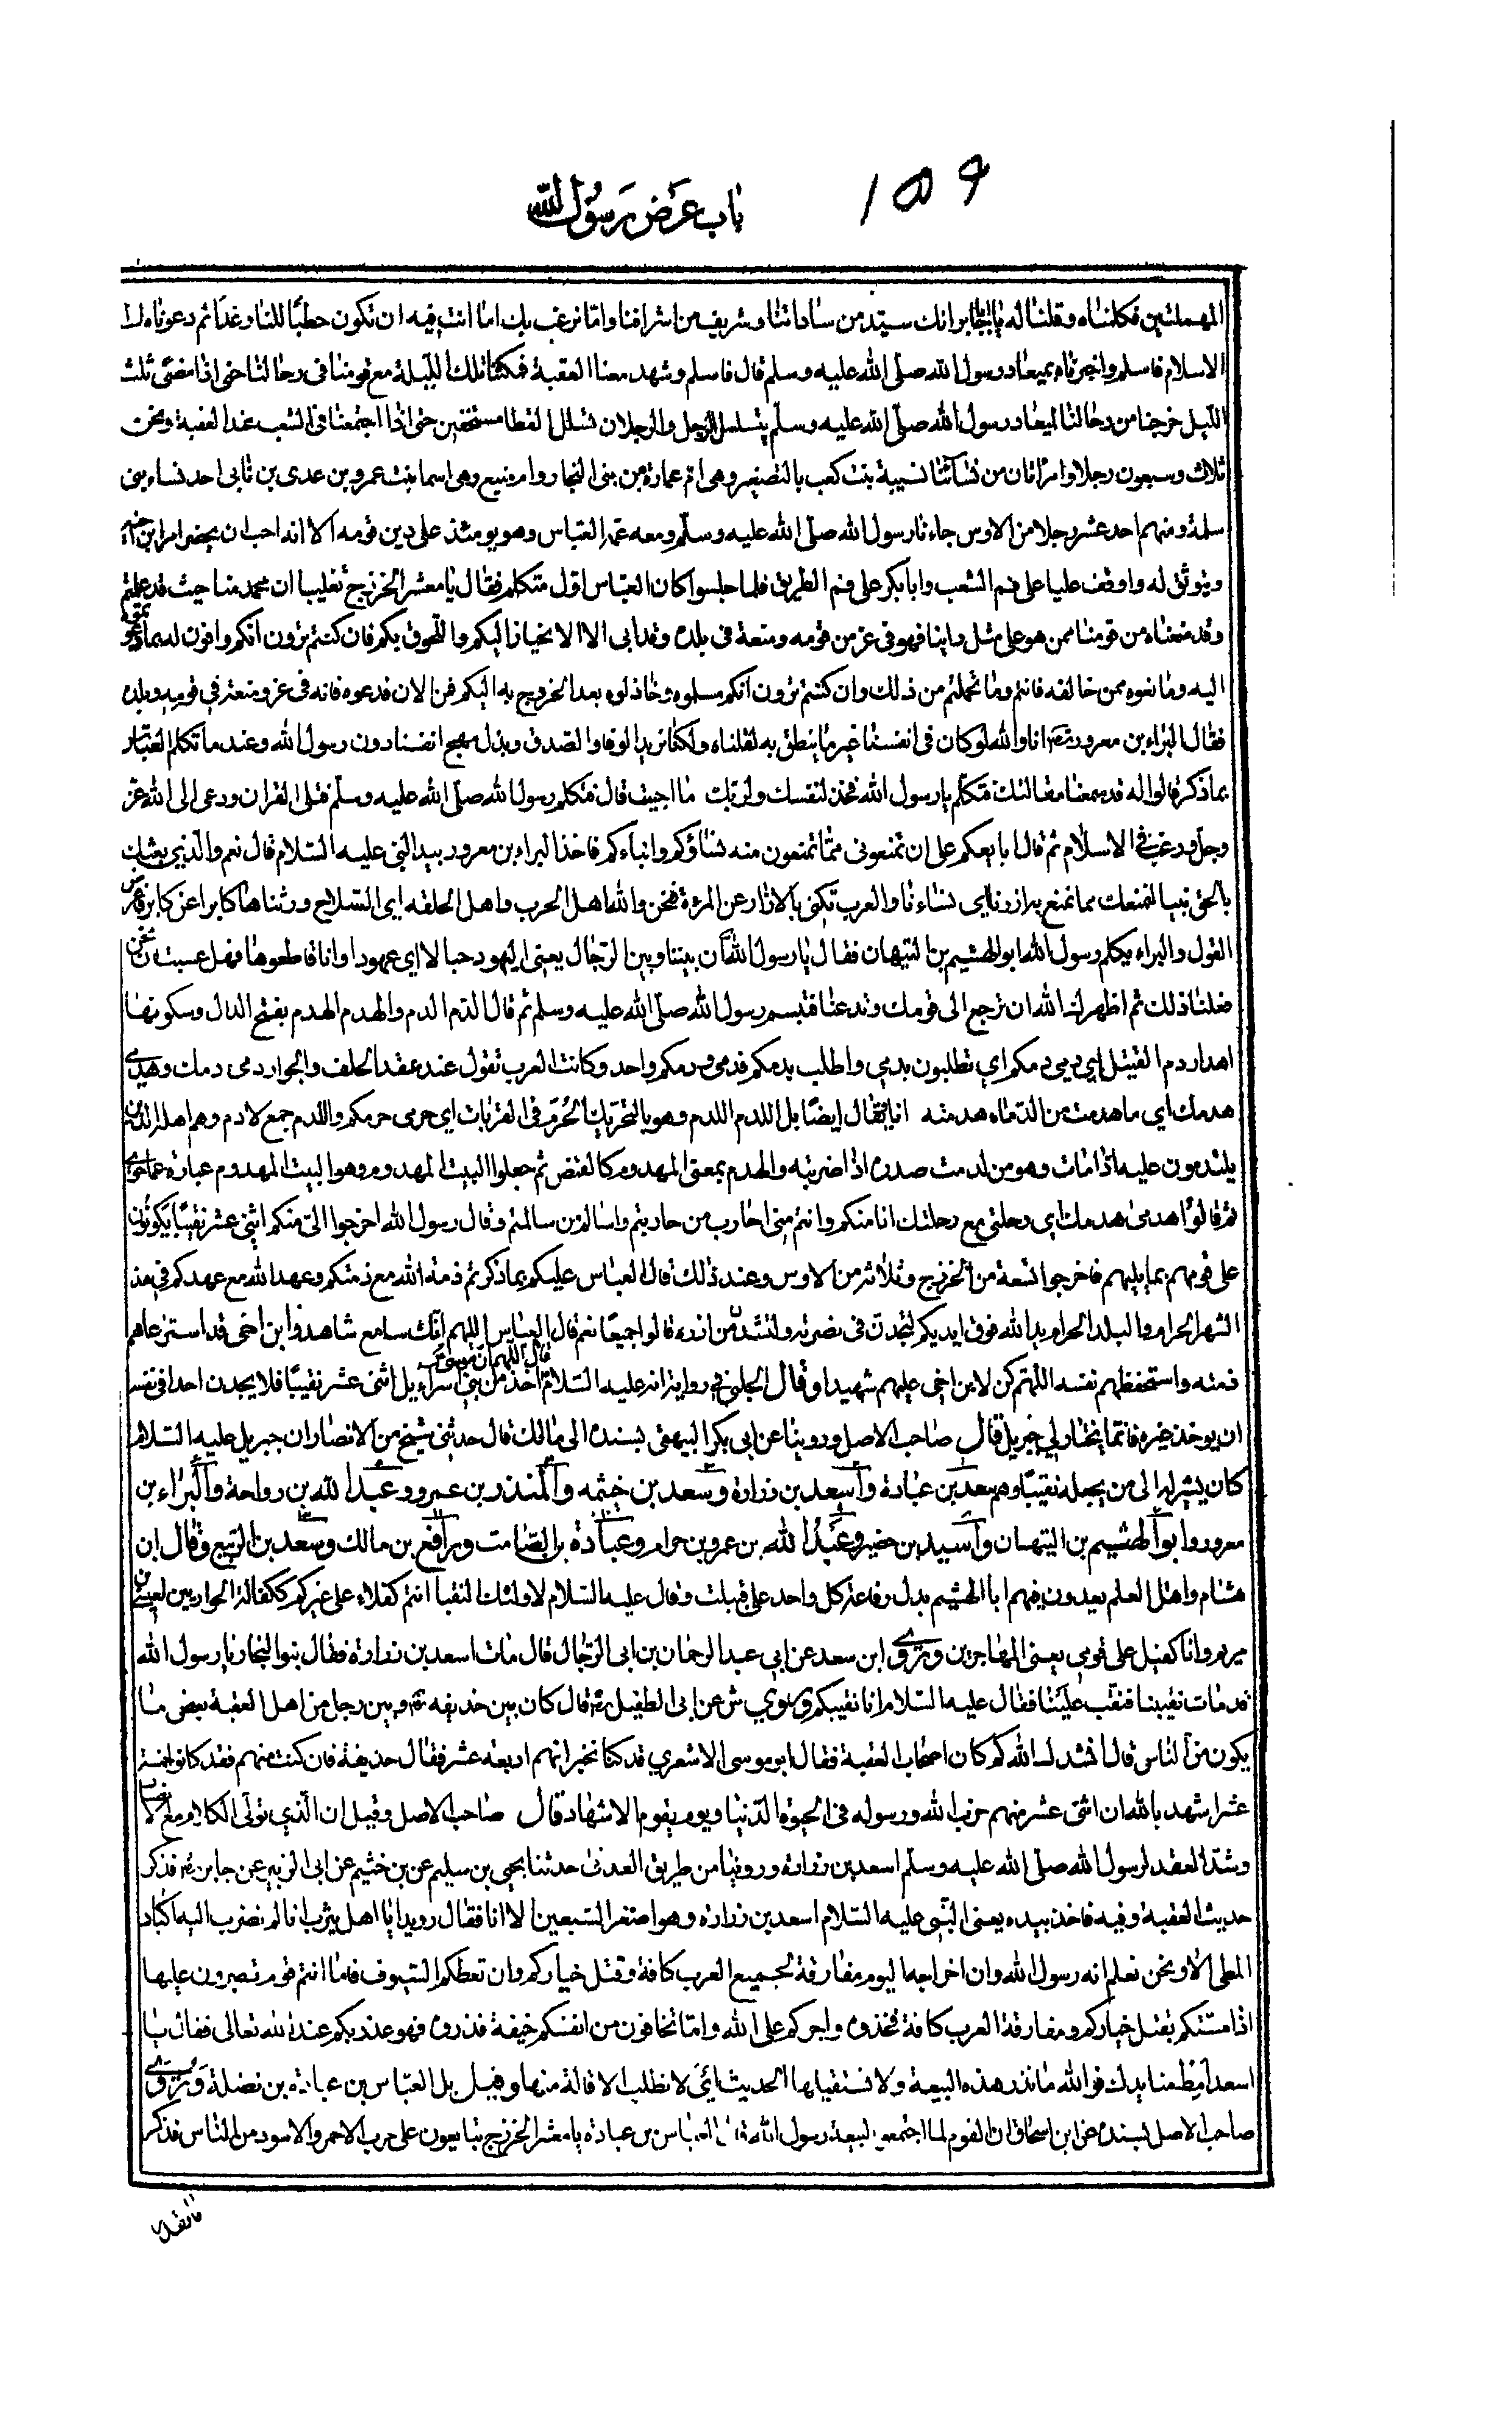 ١٥٩
باب عرض رسول الله
المسلمين فكلمناه وقلنا له يا ابا جابر انك سيد من ساداتنا وشريف من اشرافنا وانا نرغب بك اما انت فيه ان تكون حطبا للنار غدا ثم دعوناه الى
الاسلام فاسلم واخبرناه بميعاد رسول الله صلى الله عليه وسلم قال فاسلم وشهد معنا العقبة فمكثنا تلك الليلة مع قومنا في رحالنا حتى اذا مضى ثلث
الليل خرجنا من رحالنا لميعاد رسول الله صلى الله عليه وسلم يتسلسل الرجل والرجلان تسلل القطا مستخفين حتى اذا اجتمعنا في الشعب عند العقبة ونحن
ثلاث وسبعون رجلا وامراتان من نسائنا نسيبة بنت كعب بالتصغير وهى ام عمارة من بنى النجار وام منيع وهى اسما بنت عمرو بن عدى بن نابى احد نساء بنى
سلمة ومنهم احد عشر رجلا من الاوس جاءنا رسول الله صلى الله عليه وسلم ومعه عمه العباس وهو يومئذ على دين قومه الا انه احب ان يحضر امر ابن اخيه
ويتوثق له واوقف عليا على فم الشعب وابا بكر على فم الطريق فلما جلسوا كان العباس اول متكلم فقال يا معشر الخزرج تغليبا ان محمد منا حيث قد علمتم
وقد منعناه من قومنا ممن هو على مثل راينا فهو في عز من قومه ومنعة في بلده وقد ابى الا الانحياز اليكم واللحوق بكم فان كنتم ترون انكم وافون له بما دعوتموه
اليه ومانعوه ممن خالفه فانتم وما تحملتم من ذلك وان كنتم ترون انكم مسلموه وخاذلوه بعد الخروج به اليكم فمن الان فدعوه فانه في عز ومنعة في قومه وبلده
فقال البراء بن معرور انا والله لو كان في انفسنا غير ما ينطق به لقلناه ولكنا نريد الوفا والصدق وبذل مهج انفسنا دون رسول الله وعند ما تكلم العباس
بما ذكر قالوا له قد سمعنا مقالتك فتكلم يا رسول الله فخذ لنفسك ولربك ما احببت قال فتكلم رسول الله صلى الله عليه وسلم فتلى القران ودعى الى الله عز
وجل ورغب في الاسلام ثم قال ابايعكم على ان تمنعونى مما تمنعون منه نساؤكم وابناءكم فاخذ البراء بن معرور بيد النبي عليه السلام قال نعم والذي بعثك
بالحق نبيا لنمنعك مما نمنع به ازرنا اي نساءنا والعرب تكنى بالازار عن المرءة فنحن والله اهل الحرب واهل الحلقه اي السلاح ورثناها كابرا عن كابر فاعترض
القول والبراء يكلم رسول الله ابو الهيثم بن التيهان فقال يا رسول الله ان بيننا وبين الرجال يعنى اليهود حبالا اي عهودا وانا قاطعوها فهل عسيت ان نحن
فعلنا ذلك ثم اظهرك الله ان ترجع الى قومك وتدعنا فتبسم رسول الله صلى الله عليه وسلم ثم قال الدم الدم والهدم الهدم بفتح الدال وسكونها
اهدار دم القتيل اي دمي دمكم اي تطلبون بدمي واطلب بدمكم فدمى ودمكم واحد وكانت العرب تقول عند عقد الحلف والجوار دمى دمك وهدمى
هدمك اي ما هدمت من الدماء هدمته انا يقال ايضا بل اللدم اللدم وهو بالتحريك الحرم في القربات اي حرمى حرمكم واللدم جمع لادم وهم اهله الذين
يلتدمون عليه اذا مات وهو من لدمت صدره اذا ضربته والهدم بمعنى المهدوم كالقنص ثم جعلوا البيت المهدوم وهو البيت المهدوم عبارة عما حوى
ثم قالوا هدمى هدمك اي رحلتى مع رحلتك انا منكم وانتم منى احارب من حاربتم واسالم من سالمتم وقال رسول الله اخرجوا الى منكم اثنى عشر نقيبا يكونون
على قومهم بما يليهم فاخرجوا تسعة من الخزرج وثلاثة من الاوس وعند ذلك قال العباس عليكم بما ذكرتم ذمة الله مع ذمتكم وعهد الله مع عهدكم في هذا
الشهر الحرام والبلد الحرام يد الله فوق ايديكم لتجدن في نصرته ولتشدن من ازره قالوا جميعا نعم قال العباس اللهم انك سامع شاهد وابن اخى قد استرعاهم
ذمته واستحفظهم نفسه اللهم كن لابن اخى عليهم شهيدا وقال الحلبى في رواية انه عليه السلام قال اللهم ان موسى اخذ من بنى اسراءيل اثنى عشر نقيبا فلا يجدن احدا في نفسه
ان يوخذ غيره فانما يختار لي جبريل قال صاحب الاصل وروينا عن ابى بكر البيهقى بسنده الى مالك قال حدثنى شيخ من الانصار ان جبريل عليه السلام
كان يشير له الى من يجعله نقيبا وهم سعد بن عبادة واسعد بن زرارة وسعد بن خيثمه والمنذر بن عمرو وعبد الله بن رواحة والبراء بن
معرور وابو الهيثم بن التيهان واسيد بن حضير وعبد الله بن عمرو بن حرام وعبادة بن الصامت ورافع بن مالك وسعد بن الربيع وقال ابن
هشام واهل العلم يعدون فيهم ابا الهيثم بدل رفاعة كل واحد على قبيلة وقال عليه السلام لاولئك النقبا انتم كفلاء على غيركم ككفالة الحواريين لعيسى بن
مريم وانا كفيل على قومي يعنى المهاجرين وروى ابن سعد عن ابي عبد الرحمان بن ابى الرجال قال مات اسعد بن زرارة فقال بنو النجار يا رسول الله
قد مات نقيبنا فنقب علينا فقال عليه السلام انا نقيبكم وروي ش عن ابى الطفيل قال كان بين حذيفه وبين رجل من اهل العقبة بعض ما
يكون من الناس قال انشدك الله كم كان اصحاب العقبة فقال ابو موسى الاشعري قد كنا نخبر انهم اربعة عشر فقال حذيفة فان كنت منهم فقد كانوا خمسة
عشر اشهد بالله ان اثنى عشر منهم حزب الله ورسوله في الحيوة الدنيا ويوم يقوم الاشهاد قال صاحب الاصل وقيل ان الذي تولى الكلام مع الانصار
وشد العقد لرسول الله صلى الله عليه وسلم اسعد بن زرارة وروينا من طريق العدنى حدثنا يحيى بن سليم عن بن خثيم عن ابى الزبير عن جابر فذكر
حديث العقبة وفيه فاخذ بيده يعنى النبى عليه السلام اسعد بن زرارة وهو اصغر السبعين الا انا فقال رويدا يا اهل يثرب انا لم نضرب اليه اكباد
المطى الا ونحن نعلم انه رسول الله وان اخراجه اليوم مفارقة لجميع العرب كافة وقتل خياركم وان تعظكم السيوف فاما انتم قوم تصبرون عليها
اذا مستكم بقتل خياركم ومفارقة العرب كافة فخذوه واجركم على الله واما تخافون من انفسكم خيفة فذروه فهو عذر بكم عند الله تعالى فقالوا يا
اسعد امط عنا يدك فوالله ما نذر هذه البيعة ولا نستقيلها الحديث اي لا نطلب الاقالة منها وقيل بل العباس بن عبادة بن نضلة وروى
صاحب الاصل بسنده عن ابن اسحاق ان القوم لما اجتمعوا لبيعة رسول الله قال العباس بن عبادة يا معشر الخزرج تبايعون على حرب الاحمر والاسود من الناس فذكر